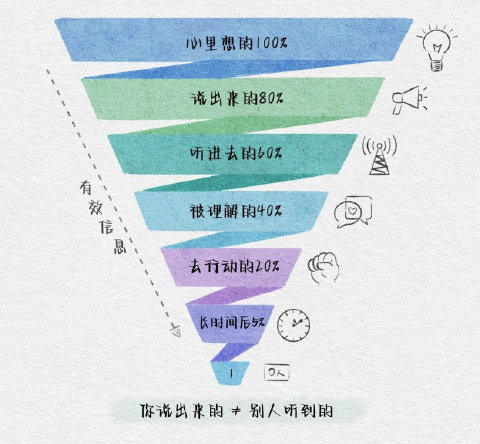 心里想的100%
说出来的80%
听进去的60%
被理解的40%
去行动的20%
长时间后5%
有效信息
你说出来的 ≠ 别人听到的